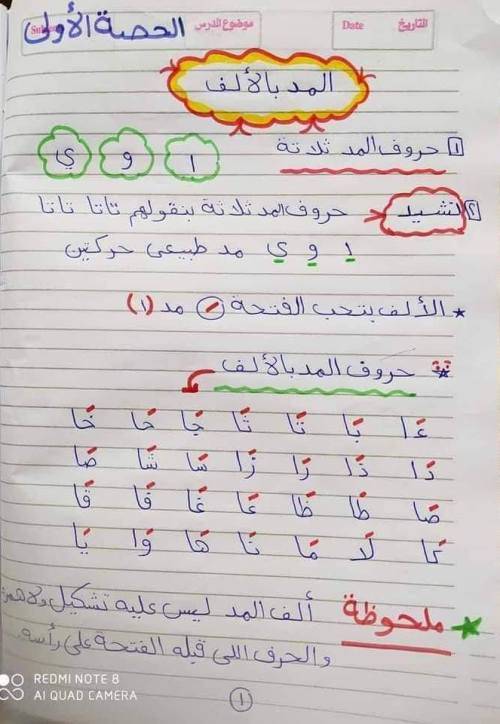 الحصة الأولى
التاريخ Date موضوع الدرس Subject
المد بالألف
١ حروف المد ثلاثة
ا و ي
٢ نشيد حروف المد ثلاثة بنقولهم تاتا تاتا
ا و ي مد طبيعى حركتين
* الألف بتحب الفتحة مد (ا)
حروف المد بالألف
ءَا بَا تَا ثَا جَا حَا خَا
دَا ذَا رَا زَا سَا شَا صَا
ضَا طَا ظَا عَا غَا فَا قَا
كَا لَا مَا نَا هَا وَا يَا
ملحوظة ألف المد ليس عليه تشكيل ولا همزة
والحرف اللى قبله الفتحة على رأسه
١
REDMI NOTE 8
AI QUAD CAMERA